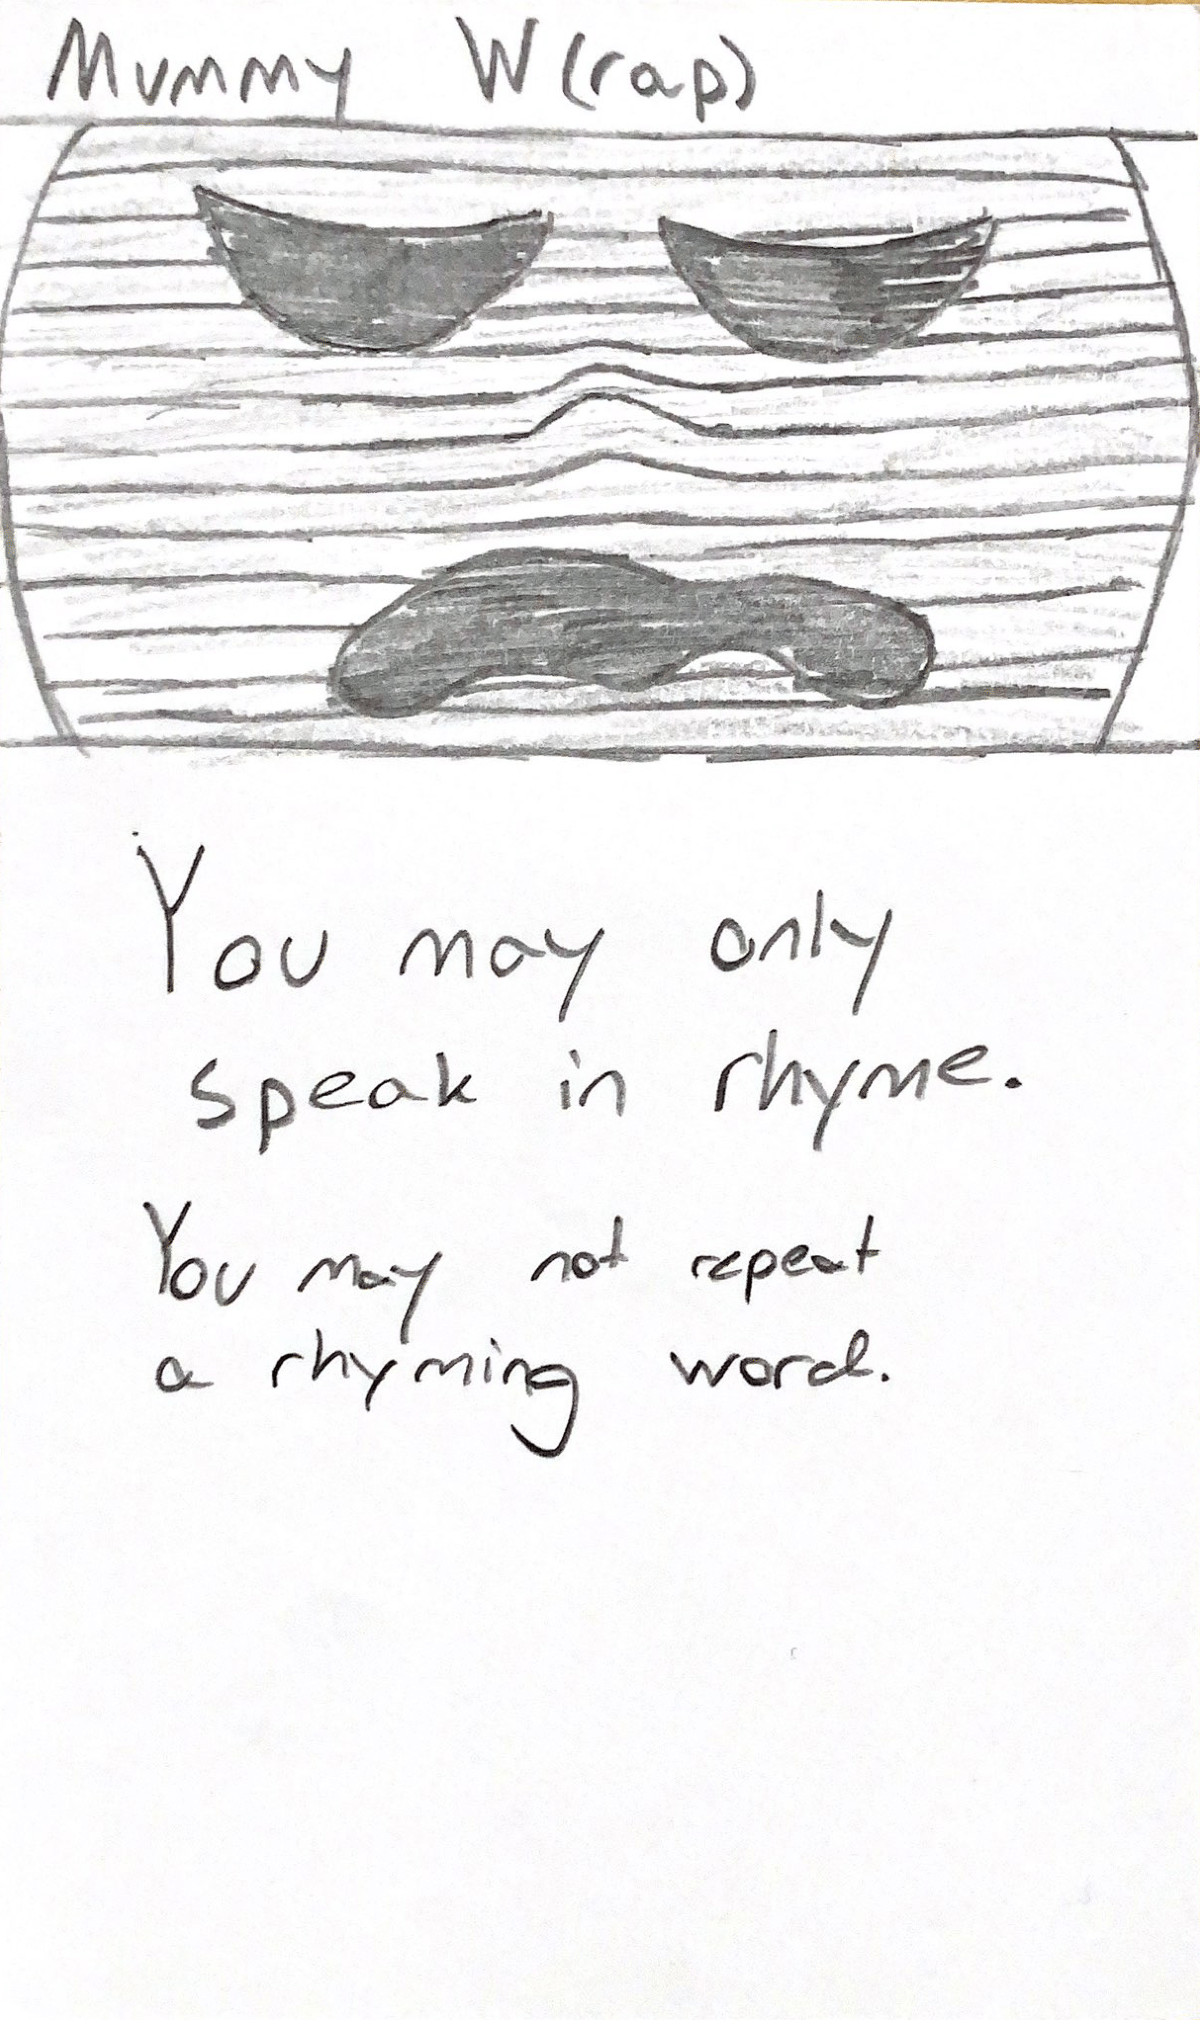 Mummy W(rap)
You may only
speak in rhyme.
You may not repeat
a rhyming word.